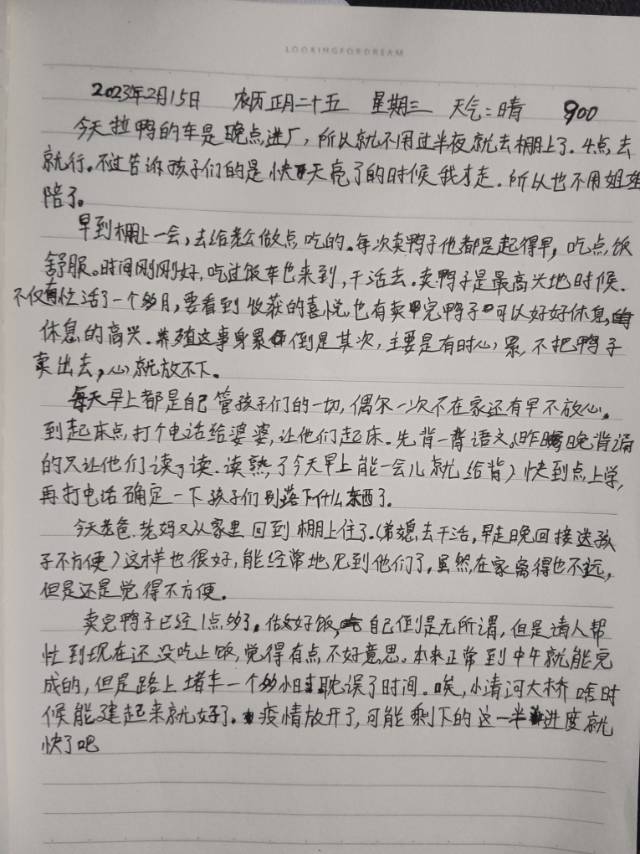 LOOKINGFORDREAM
2023年2月15日 农历正月二十五 星期三 天气:晴 900
今天拉鸭的车是晚点进厂,所以就不用过半夜就去棚上了.4点去
就行。不过告诉孩子们的是快天亮了的时候我才走.所以也不用姐姐
陪了。
早到棚上一会,去给老公做点吃的。每次卖鸭子他都是起得早,吃点饭
舒服。时间刚刚好,吃过饭车也来到,干活去.卖鸭子是最高兴地时候.
不仅有忙活了一个多月,要看到收获的喜悦,也有卖完鸭子可以好好休息
休息的高兴.养殖这事身累倒是其次,主要是有时心累,不把鸭子
卖出去,心就放不下。
每天早上都是自己管孩子们的一切,偶尔一次不在家还有早不放心。
到起床点,打个电话给婆婆,让他们起床.先背一背语文(昨晚背诵
的又让他们读了读.读熟了今天早上能一会儿就给背)快到点上学,
再打电话确定一下孩子们别落下什么东西了.
今天老爸.老妈又从家里回到棚上住了.(弟媳去干活,早走晚回接送孩
子不方便)这样也很好,能经常地见到他们了,虽然在家离得也不远,
但是还是觉得不方便。
卖完鸭子已经1点多了。做好饭,自己倒是无所谓,但是请人帮
忙到现在还没吃上饭,觉得有点不好意思。本来正常到中午就能完
成的,但是路上堵车一个多小时耽误了时间.唉,小清河大桥啥时
候能建起来就好了.疫情放开了,可能剩下的这一半进度就
快了吧